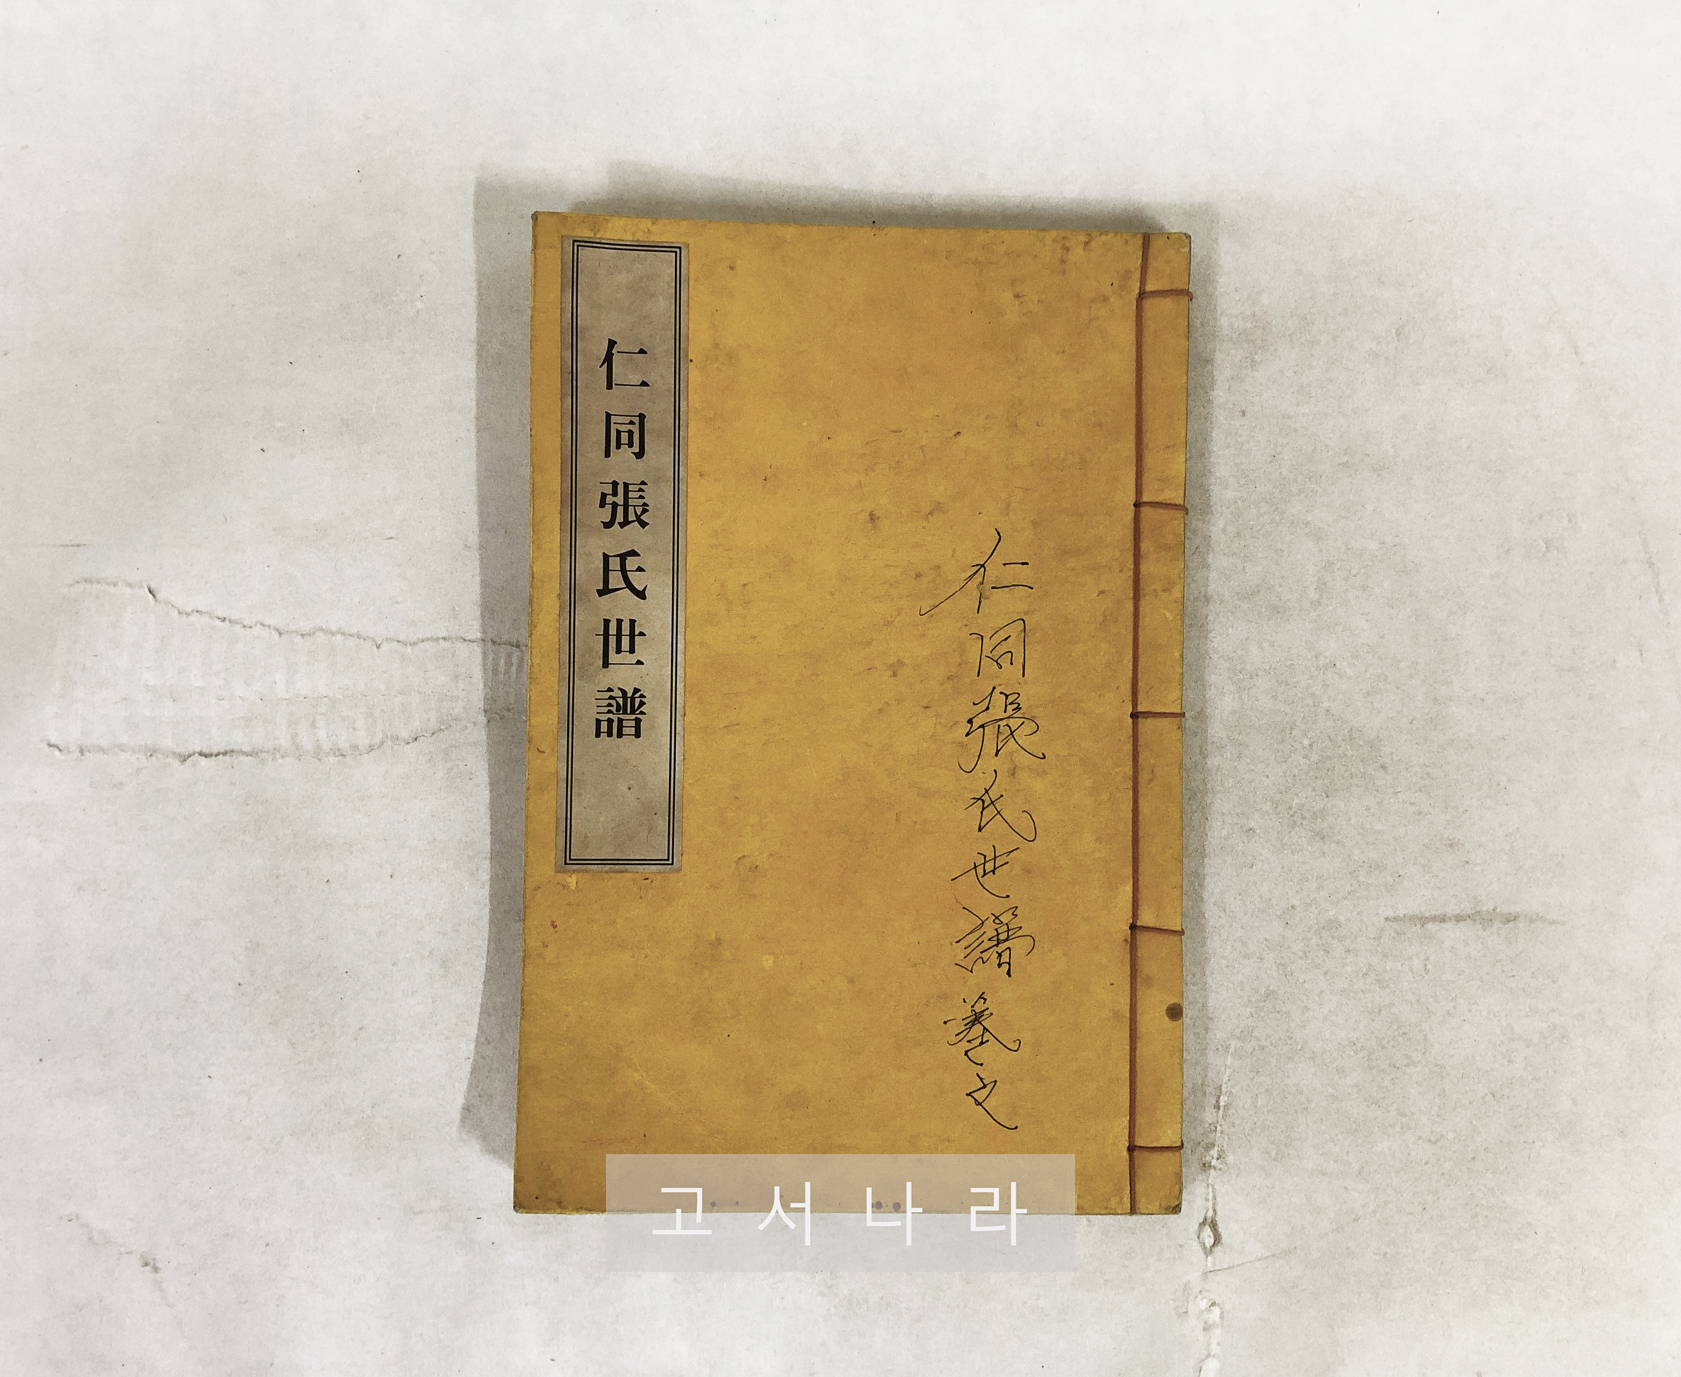 仁同張氏世譜
仁同張氏世譜
고서나라